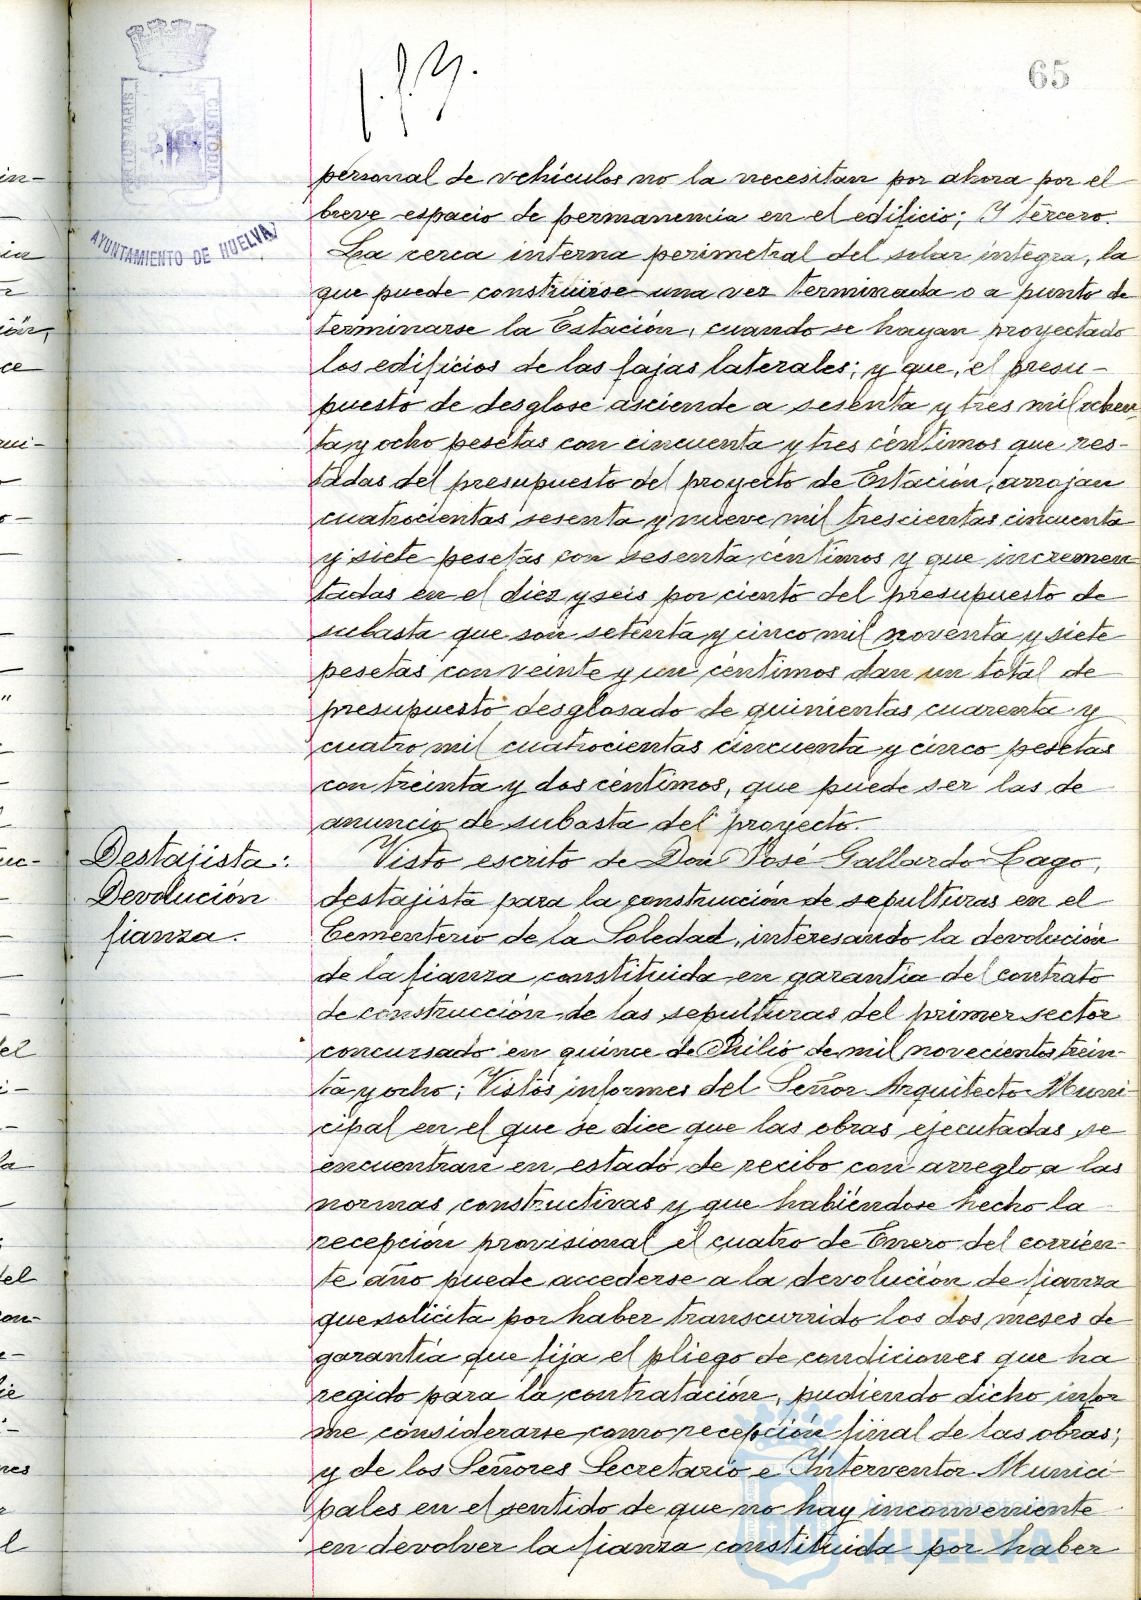 65
AYUNTAMIENTO DE HUELVA
personal de vehículos no la necesitan por ahora por el
breve espacio de permanencia en el edificio; Y tercero.
La cerca interna perimetral del solar integra, la
que puede construirse una vez terminada o a punto de
terminarse la Estación, cuando se hayan proyectado
los edificios de las fajas laterales; y que, el presu-
puesto de desglose asciende a sesenta y tres mil ochen
ta y ocho pesetas con cincuenta y tres céntimos que res-
tadas del presupuesto del proyecto de Estación, arrojan
cuatrocientas sesenta y nueve mil trescientas cincuenta
y siete pesetas con sesenta céntimos y que incremen
tadas en el diez y seis por ciento del presupuesto de
subasta que son setenta y cinco mil noventa y siete
pesetas con veinte y un céntimos dan un total de
presupuesto desglosado de quinientas cuarenta y
cuatro mil cuatrocientas cincuenta y cinco pesetas
con treinta y dos céntimos, que puede ser las de
anuncio de subasta del proyecto.
Destajista:
Devolución
fianza.
Visto escrito de Don José Gallardo Lago,
destajista para la construcción de sepulturas en el
Cementerio de la Soledad, interesando la devolución
de la fianza constituida en garantía del contrato
de construcción de las sepulturas del primer sector
concursado en quince de Julio de mil novecientos trein-
ta y ocho; Vistos informes del Señor Arquitecto Muni-
cipal en el que se dice que las obras ejecutadas se
encuentran en estado de recibo con arreglo a las
normas constructivas y que habiéndose hecho la
recepción provisional el cuatro de Enero del corrien-
te año puede accederse a la devolución de fianza
que solicita por haber transcurrido los dos meses de
garantía que fija el pliego de condiciones que ha
regido para la contratación, pudiendo dicho infor
me considerarse como recepción final de las obras;
y de los Señores Secretario e Interventor Munici-
pales en el sentido de que no hay inconveniente
en devolver la fianza constituida por haber
Ayuntamiento de
HUELVA